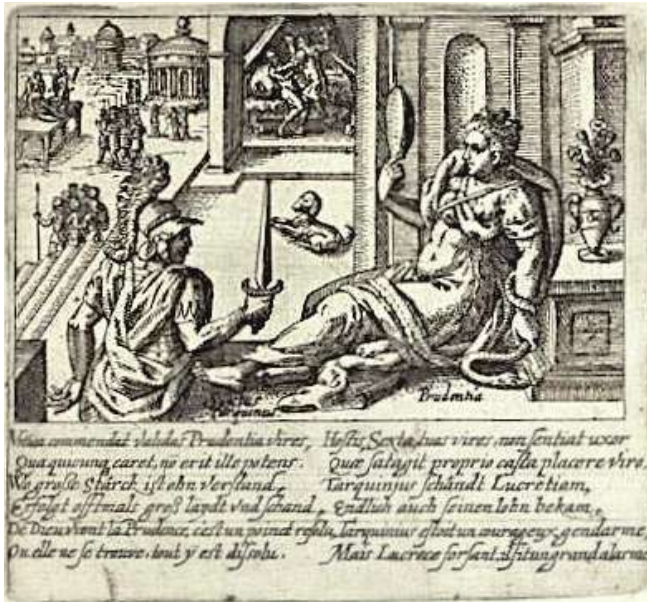 Tarquinius
Prudentia
commendat validas Prudentia vires,
Qua quicunq caret, nõ erit ille potens.
Wo große Stärck ist ohn verstand,
Erfolgt offtmals groß laydt vnd schand,
De Dieu vient la Prudence, c'est un poinct resolu,
Ou elle ne se trouve, tout y est dissolu.
Hostis Sexta, tuas vires, non sentiat uxor
Quæ satagit proprio casta placere viro.
Tarquinius schändt Lucretiam,
Endlich auch seinen lohn bekam.
Tarquinius estoit un courageux gendarme,
Mais Lucrece forsant, un grand alarme